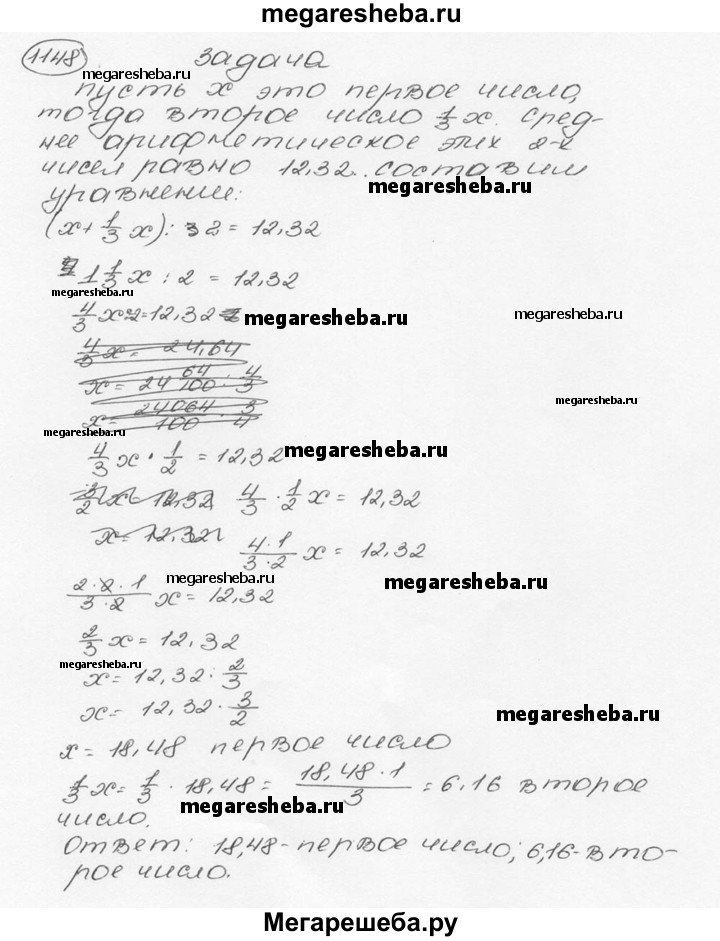 megaresheba.ru
1148 задача
megaresheba.ru
пусть x это первое число,
тогда второе число 1/3 x. Сред-
нее арифметическое этих 2-х
чисел равно 12,32. составим
megaresheba.ru
уравнение:
(x + 1/3 x) : 2 = 12,32
1 1/3 x : 2 = 12,32
megaresheba.ru
4/3 x : 2 = 12,32
megaresheba.ru
4/3 x = 24,64
x = 24 64/100 · 4/3
megaresheba.ru
x = 24064/100 · 3/4
megaresheba.ru
4/3 x · 1/2 = 12,32
megaresheba.ru
3/2 x = 12,32 4/3 · 1/2 x = 12,32
x = 12,32
4 · 1/3 · 2 x = 12,32
megaresheba.ru
megaresheba.ru
2 · 2 · 1/3 · 2 x = 12,32
2/3 x = 12,32
megaresheba.ru
x = 12,32 : 2/3
x = 12,32 · 3/2
megaresheba.ru
x = 18,48 первое число
1/3 x = 1/3 · 18,48 = 18,48 · 1/3 = 6,16 второе
megaresheba.ru
число.
Ответ: 18,48 - первое число; 6,16 - вто-
рое число.
Мегарешеба.ру